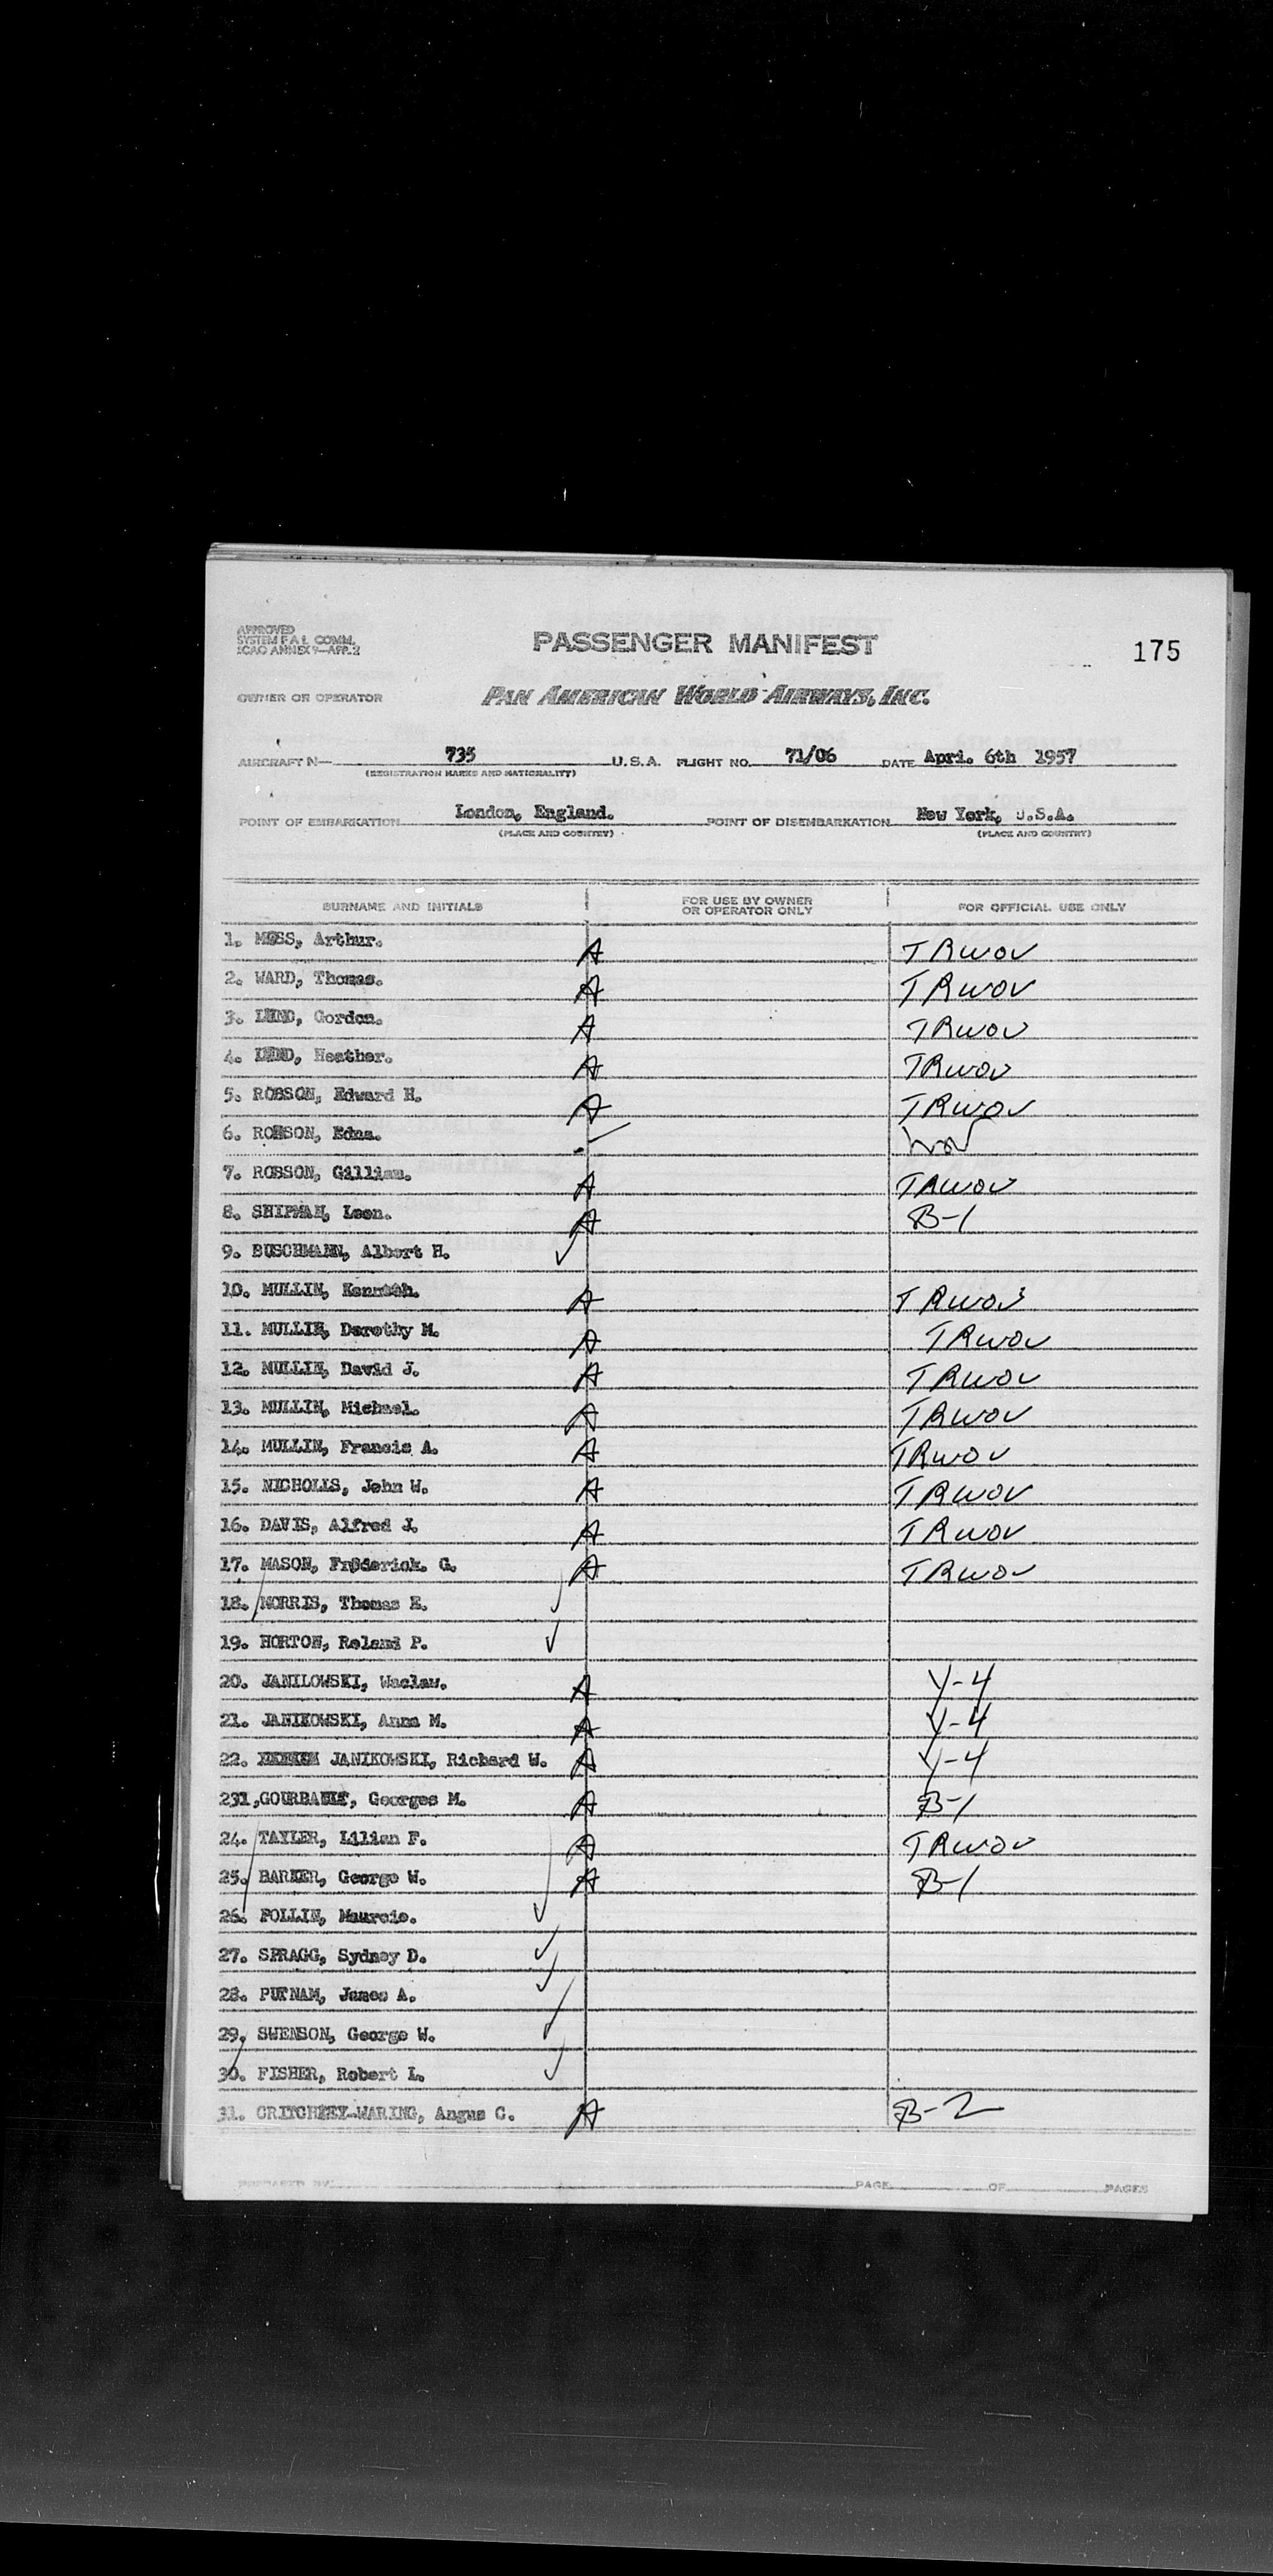 APPROVED
SYSTEM F.A.L. COMM.
ICAO ANNEX 9—APP. 2
PASSENGER MANIFEST
175
OWNER OR OPERATOR PAN AMERICAN WORLD AIRWAYS, INC.
AIRCRAFT N— 735 U.S.A. FLIGHT NO. 71/06 DATE Apri. 6th 1957
(REGISTRATION MARKS AND NATIONALITY)
POINT OF EMBARKATION London, England. POINT OF DISEMBARKATION New York, U.S.A.
(PLACE AND COUNTRY) (PLACE AND COUNTRY)
SURNAME AND INITIALS FOR USE BY OWNER OR OPERATOR ONLY FOR OFFICIAL USE ONLY
1. MOSS, Arthur. A TRWOV
2. WARD, Thomas. A TRWOV
3. Gordon. A TRWOV
4. Heather. A TRWOV
5. ROBSON, Edward H. A TRWOV
6. ROBSON, Edna. WOV
7. ROBSON, Gillian. A TRWOV
8. SHIPMAN, Leon. A B-1
9. BUSCHMANN, Albert H. ✓
10. MULLIN, Kenneth. A TRWOV
11. MULLIN, Dorothy M. A TRWOV
12. MULLIN, David J. A TRWOV
13. MULLIN, Michael. A TRWOV
14. MULLIN, Francis A. A TRWOV
15. NICHOLLS, John W. A TRWOV
16. DAVIS, Alfred J. A TRWOV
17. MASON, Frederick. G. A TRWOV
18. MORRIS, Thomas E. ✓
19. HORTON, Roland P. ✓
20. JANILOWSKI, Waclaw. A Y-4
21. JANIKOWSKI, Anna M. A Y-4
22. JANIKOWSKI, Richard W. A Y-4
231, GOURBAULT, Georges M. A B-1
24. TAYLER, Lilian F. A TRWOV
25. BARKER, George W. A B-1
26. FOLLIN, Maurcie. ✓
27. SPRAGG, Sydney D. ✓
28. PUTNAM, James A. ✓
29. SWENSON, George W. ✓
30. FISHER, Robert L. ✓
31. CRITCHLEY-WARING, Angus C. A B-2
PREPARED BY PAGE OF PAGES